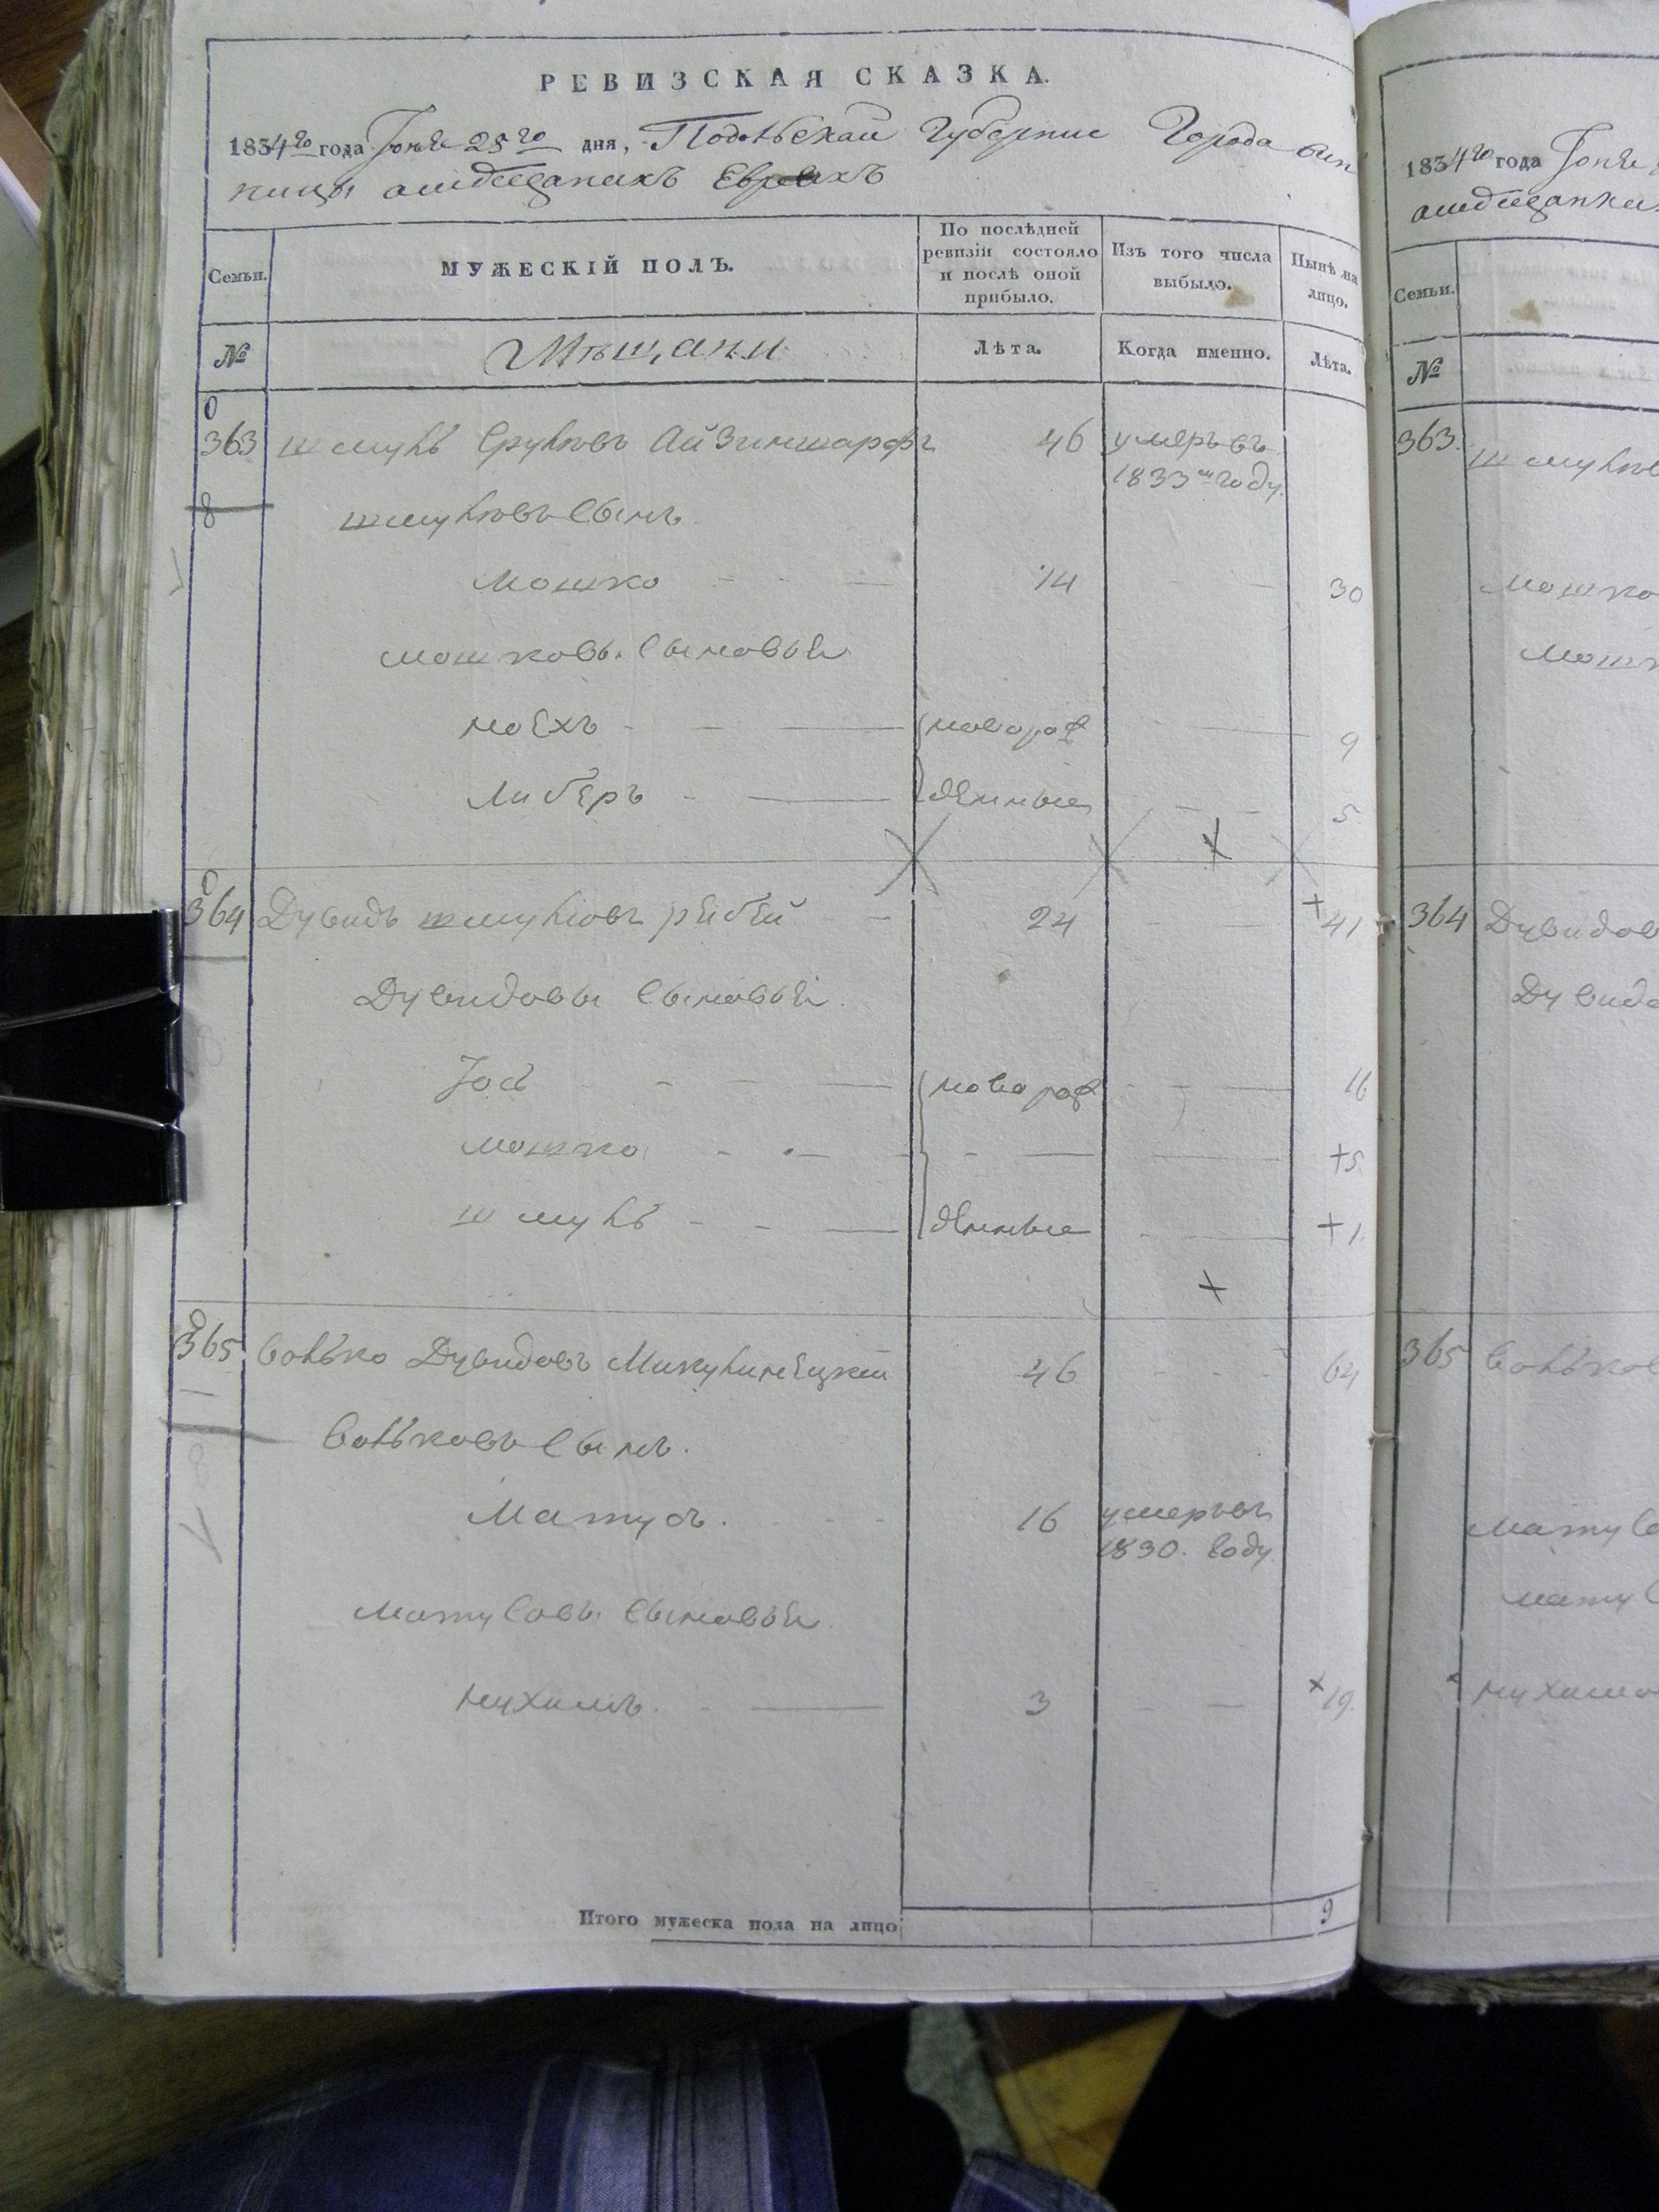 РЕВИЗСКАЯ СКАЗКА.
1834го года Іюня 25го дня, Подольской Губернии Города Вин
ницы о мѣщанахъ Евреяхъ
Семьи. МУЖЕСКІЙ ПОЛЪ. По послѣдней ревизіи состояло и послѣ оной прибыло. Изъ того числа выбыло. Нынѣ на лицо.
№ Мѣщани Лѣта. Когда именно. Лѣта.
363 Шмуль Сруловъ Айзиншарфъ 46 умеръ въ
1833м году
8 Шмулювъ сынъ
Мошко 14 30
Мошковы сыновья
Ноехъ новорож 9
Либеръ денные 5
364 Дувидъ Шмулювъ рейбей 24 41
Дувидовы сыновья
Іось новорож 16
Мошко 5
Шмуль денные 1
365 Волько Дувидовъ Микулинецкій 46 64
Вольковъ сынъ.
Матусь. 16 умеръ въ
1830. году
Матусовы сыновья
Нухимъ 3 19
Итого мужеска пола на лицо 9
1834го года Іюня
о мѣщанахъ
Семьи.
№
363.
Мошко
364 Дувидов
Дувидо
365 Вольков
Матусо
Матус
Нухимо